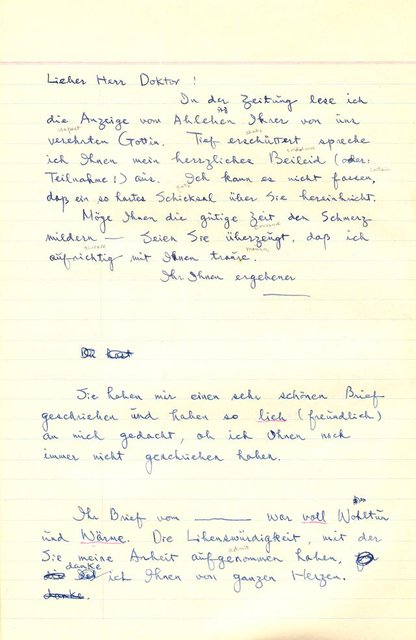 Lieber Herr Doktor!
In der Zeitung lese ich
die Anzeige vom Ableben Ihrer von uns
verehrten Gattin. Tief erschüttert spreche
ich Ihnen mein herzliches Beileid (oder:
Teilnahme!) aus. Ich kann es nicht fassen,
daß ein so hartes Schicksal über Sie hereinbricht.
Möge Ihnen die gütige Zeit den Schmerz
mildern — Seien Sie überzeugt, daß ich
aufrichtig mit Ihnen traure.
Ihr Ihnen ergebener
Sie haben mir einen sehr schönen Brief
geschrieben und haben so lieb (freundlich)
an mich gedacht, ob ich Ihnen noch
immer nicht geschrieben haben.
Ihr Brief vom ______ war voll Wohltun
und Wärme. Die Libenswürdigkeit, mit der
Sie meine Arbeit aufgenommen haben,
danke ich Ihnen von ganzen Herzen.